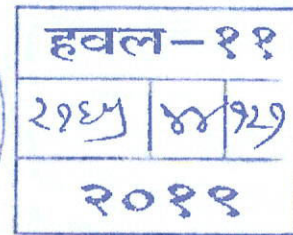 हवल-११
२१६५ ४४ १२१
२०१९